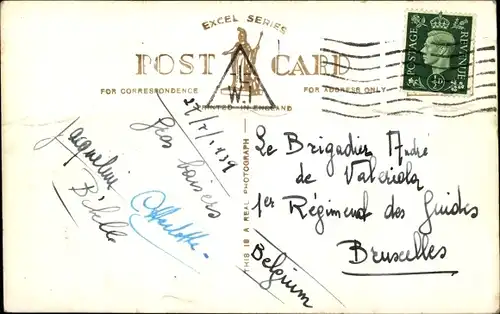 EXCEL SERIES
POST CARD
FOR CORRESPONDENCE
FOR ADDRESS ONLY
PRINTED IN ENGLAND
THIS IS A REAL PHOTOGRAPH
POSTAGE
REVENUE
½D
W.1
Gros baisers
Jacqueline
Charlotte
Le Brigadier André
de Valeriola
1er Régiment des Guides
Bruxelles
Belgium